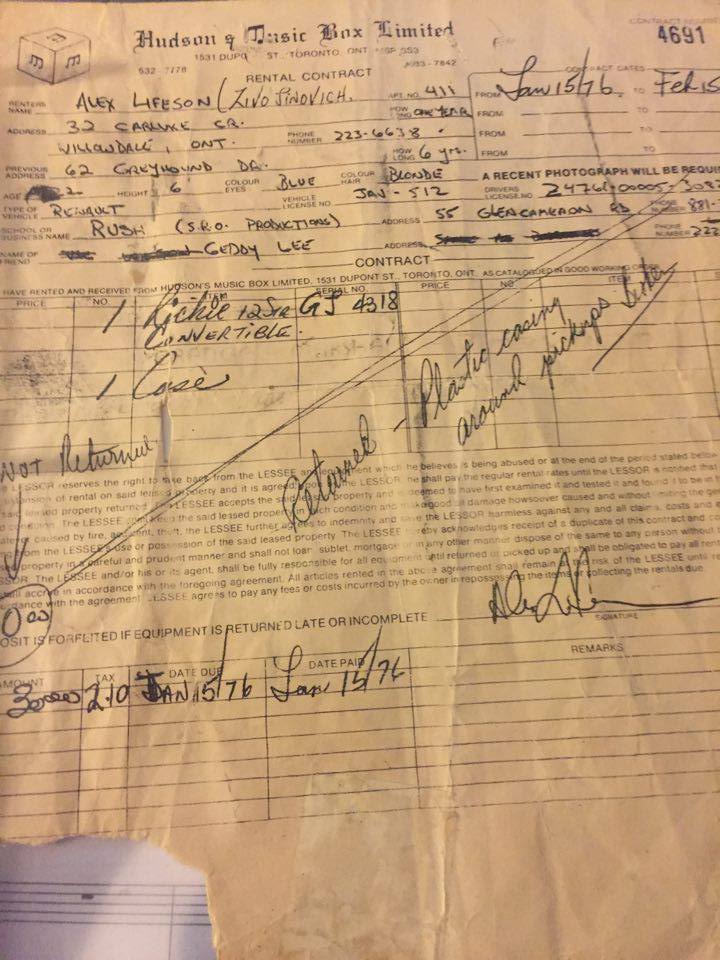 CONTRACT NUMBER
Hudson's Music Box Limited 4691
1531 DUPONT ST. TORONTO, ONT M6P 3S3
532-7778 533-7842
RENTAL CONTRACT CONTRACT DATES
RENTERS NAME ALEX LIFESON (ZIVOJINOVICH. APT. NO. 411 FROM Jan 15/76 TO Feb 15
ADDRESS 32 CARLUKE CR. HOW LONG ONE YEAR FROM TO
WILLOWDALE, ONT. PHONE NUMBER 223-6638 FROM TO
PREVIOUS ADDRESS 62 GREYHOUND DR. HOW LONG 6 yrs. FROM TO
AGE 22 HEIGHT 6' COLOUR EYES BLUE COLOUR HAIR BLONDE A RECENT PHOTOGRAPH WILL BE REQUI
TYPE OF VEHICLE RENAULT VEHICLE LICENSE NO. JAN-512 DRIVERS LICENSE NO.
SCHOOL OR BUSINESS NAME RUSH (S.R.O. PRODUCTIONS) ADDRESS 55 GLENCAMERON RD PHONE NUMBER 881-
NAME OF FRIEND GEDDY LEE ADDRESS PHONE NUMBER 222
CONTRACT
HAVE RENTED AND RECEIVED FROM HUDSON'S MUSIC BOX LIMITED, 1531 DUPONT ST., TORONTO, ONT. AS CATALOGUED IN GOOD WORKING
PRICE NO. ITEM SERIAL NO. PRICE NO. ITEM
1 Rickie 12 Str GJ 4318
CONVERTIBLE.
1 Case
Returned - Plastic casing
around pickups broken
NOT Returned
LESSOR reserves the right to take back from the LESSEE any equipment which he believes is being abused or at the end of the period stated below
extension of rental on said leased property and it is agreed the LESSOR he shall pay the regular rental rates until the LESSOR is notified that
said leased property returned The LESSEE accepts the said leased property and is deemed to have first examined it and tested it and found it to be in
condition. The LESSEE must keep the said leased property in such condition and make good all damage howsoever caused and without limiting the gen
ates caused by fire, accident, theft, the LESSEE further agrees to indemnify and save the LESSOR harmless against any and all claims, costs and
from the LESSEE's use or possession of the said leased property. The LESSEE hereby acknowledges receipt of a duplicate of this contract and
property in a careful and prudent manner and shall not loan sublet, mortgage or in any other manner dispose of the same to any person without
SSOR. The LESSEE and/or his or its agent, shall be fully responsible for all equipment until returned or picked up and shall be obligated to pay all rental
shall accrue in accordance with the foregoing agreement. All articles rented in the above agreement shall remain at the risk of the LESSEE until
dance with the agreement LESSEE agrees to pay any fees or costs incurred by the owner in repossessing the items or collecting the rentals due.
0 00
OSIT IS FORFEITED IF EQUIPMENT IS RETURNED LATE OR INCOMPLETE Alex Lifeson
SIGNATURE
AMOUNT TAX DATE DUE DATE PAID REMARKS
30.00 2.10 JAN 15/76 Jan 15/76